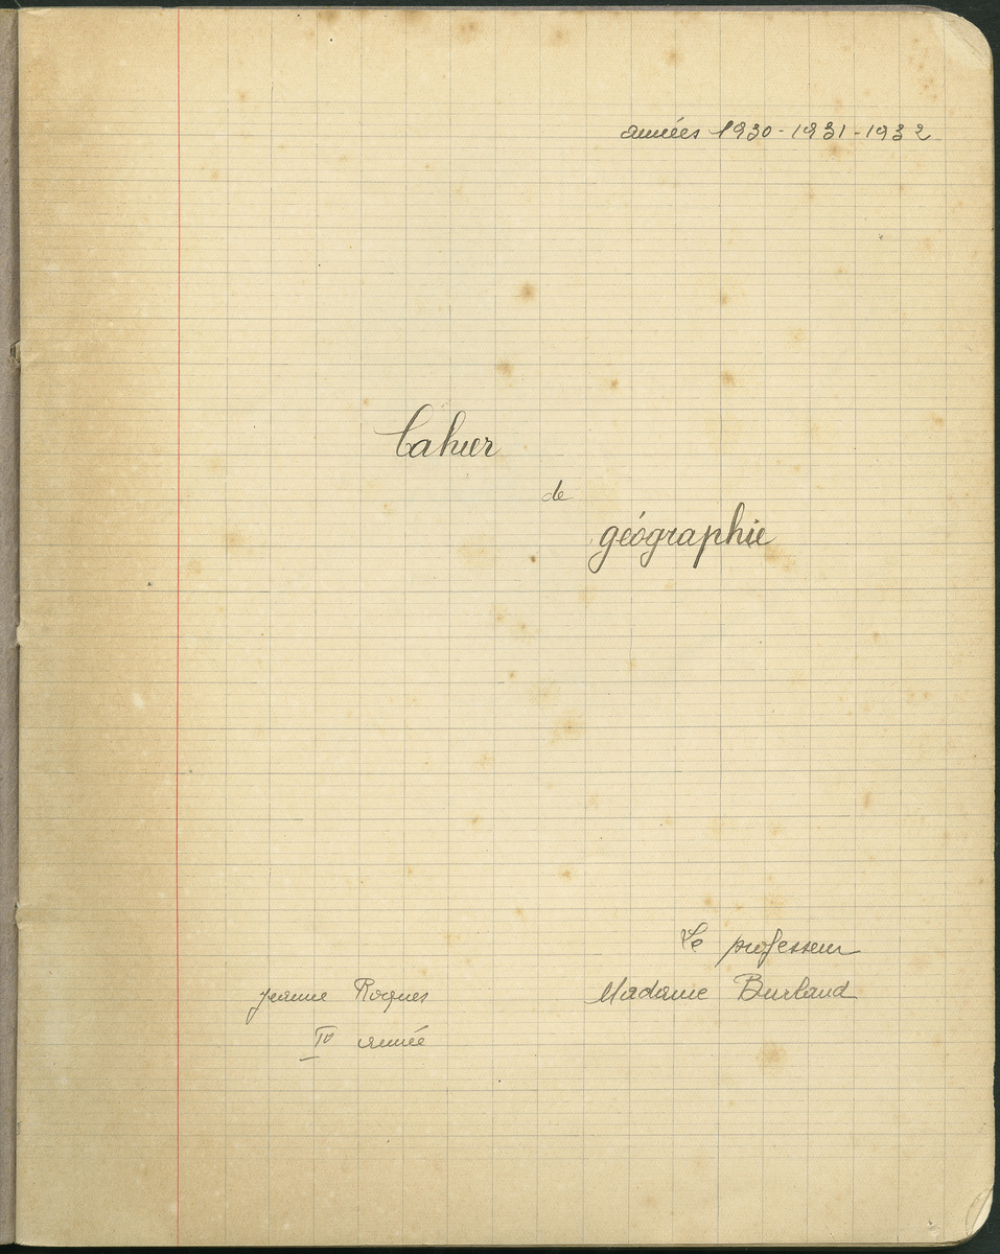 années 1930-1931-1932
Cahier
de
géographie
Le professeur
Madame Burland
Jeanne Roques
IV année